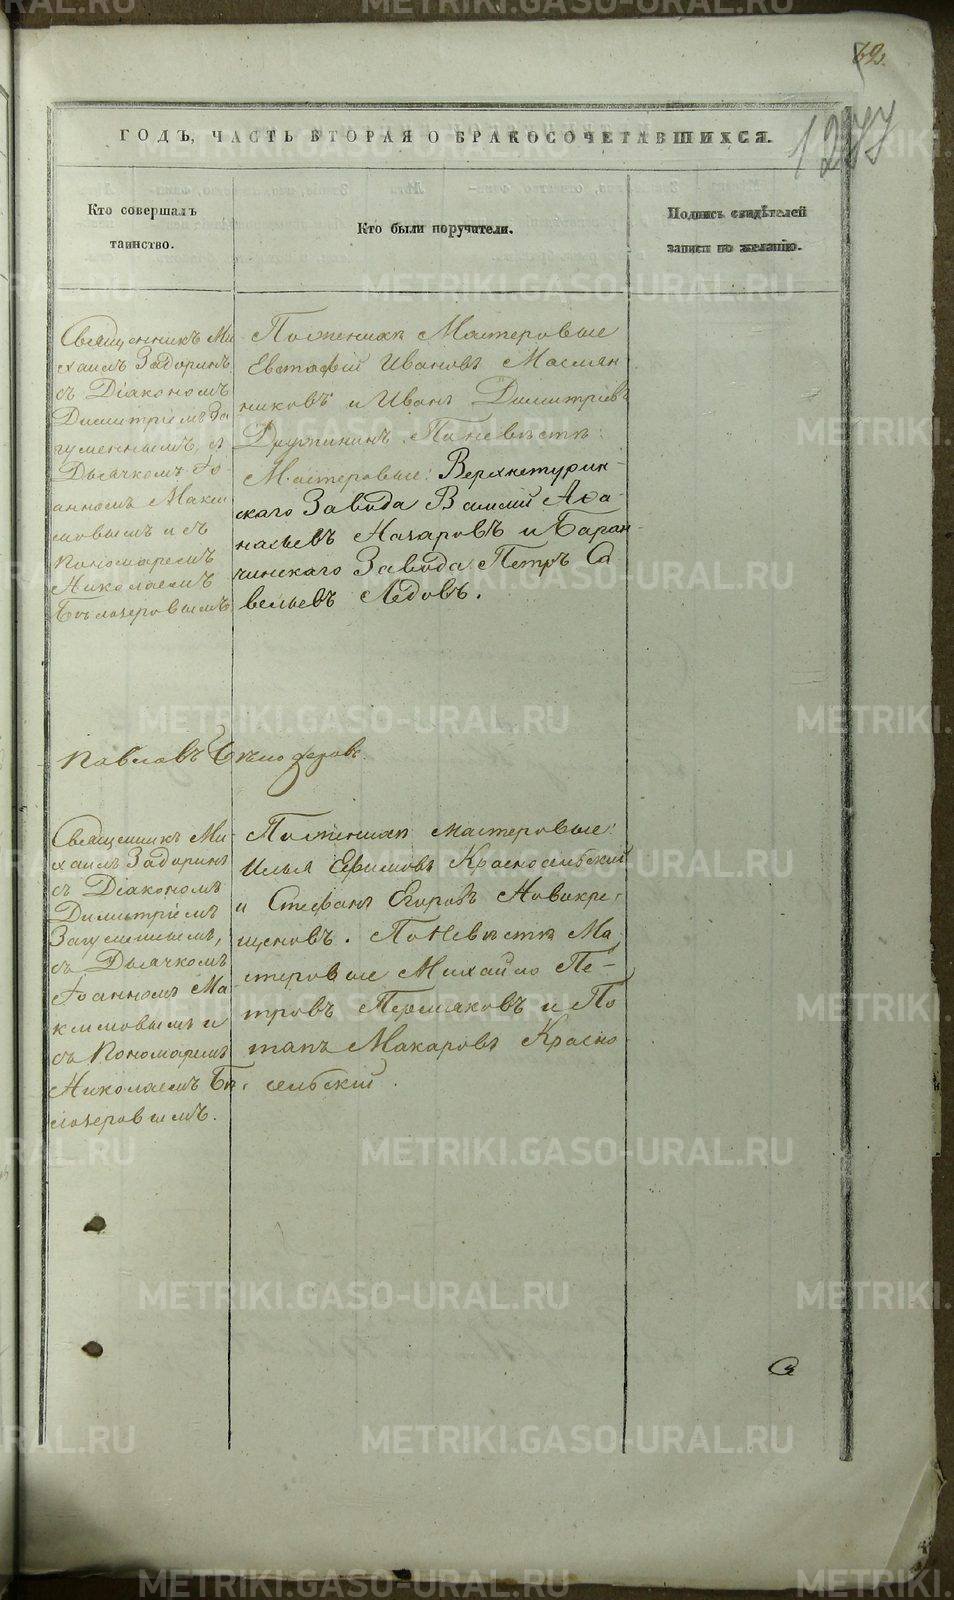 62.
ГОДЪ, ЧАСТЬ ВТОРАЯ О БРАКОСОЧЕТАВШИХСЯ.
Кто совершалъ
таинство.
Кто были поручители.
Подпись свидѣтелей
записи по желанію.
Священникъ Ми
хаилъ Задоринъ
съ Діакономъ
Димитріемъ За
гуменнымъ, съ
Дьячкомъ Іо-
анномъ Макси
мовымъ и съ
Пономаремъ
Николаемъ
Бѣлозеровымъ
По женихѣ Мастеровые
Евстафій Ивановъ Маслян
никовъ и Иванъ Димитріевъ
Дружининъ. По невѣстѣ:
Мастеровые: Верхнетурин-
скаго Завода Василій Афа-
насьевъ Назаровъ и Баран
чинскаго Завода Петръ Са
вельевъ Ледовъ.
Павловъ Бѣлозеровъ
Священникъ Ми-
хаилъ Задоринъ
съ Діакономъ
Димитріемъ
Загуменнымъ,
съ Дьячкомъ
Іоанномъ Ма-
ксимовымъ и
съ Пономаремъ
Николаемъ Бѣ-
лозеровымъ.
По женихѣ мастеровые:
Илья Ефимовъ Красносельскій
и Стефанъ Егоровъ Новокре-
щеновъ. По Невѣстѣ Ма
стеровые Михайло Пе-
тровъ Пермяковъ и По
тапъ Макаровъ Красно
сельскій.
METRIKI.GASO-URAL.RU